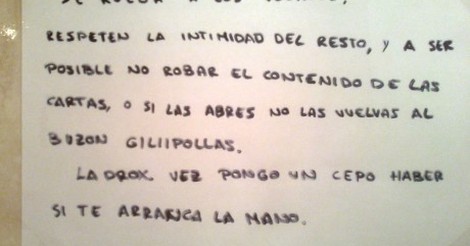 SE RUEGA A LOS VECINOS,
RESPETEN LA INTIMIDAD DEL RESTO, Y A SER
POSIBLE NO ROBAR EL CONTENIDO DE LAS
CARTAS, O SI LAS ABRES NO LAS VUELVAS AL
BUZON GILIIPOLLAS.
LA PROX. VEZ PONGO UN CEPO HABER
SI TE ARRANCA LA MANO.